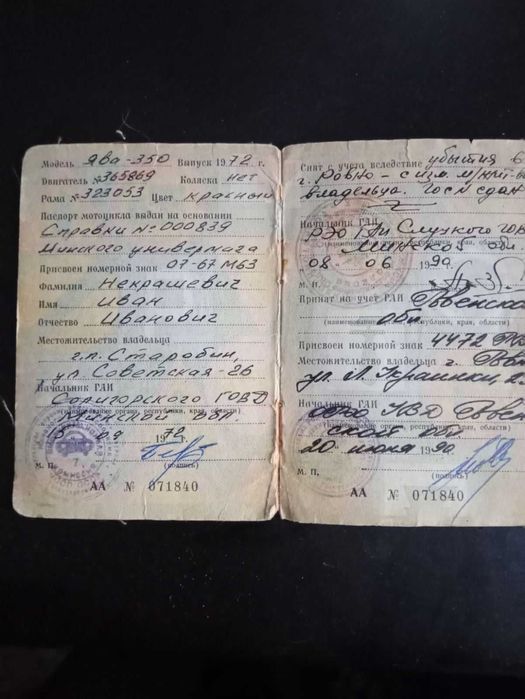 Модель Ява-350 Выпуск 1972 г.
Двигатель № 365869 Коляска нет
Рама № 323053 Цвет красный
Паспорт мотоцикла выдан на основании
Справки № 000839
Минского универмага
Присвоен номерной знак 07-67 МБЗ
Фамилия Некрашевич
Имя Иван
Отчество Иванович
Местожительство владельца
г.п. Старобин,
ул. Советская-26
Начальник ГАИ
Солигорского ГОВД
(наименование органа, республики, края, области)
Минской обл.
15 09 1972
М. П. (подпись)
АА № 071840
Снят с учета вследствие убытия в
г. Ровно - с изм. м/жит-
владельца. Госн сдан
Начальник ГАИ
РЭО ГАИ Слуцкого гор
Минской обл
08 06 1990
М. П.
Принят на учет ГАИ Ровенской
обл.
(наименование республики, края, области)
Присвоен номерной знак 4472
Местожительство владельца г.
ул. Л. Украинки, 2
Начальник ГАИ
УВД Ровен
(наименование органа, республики, края, области)
ской обл
20 июня 1990
М. П. (подпись)
АА № 071840